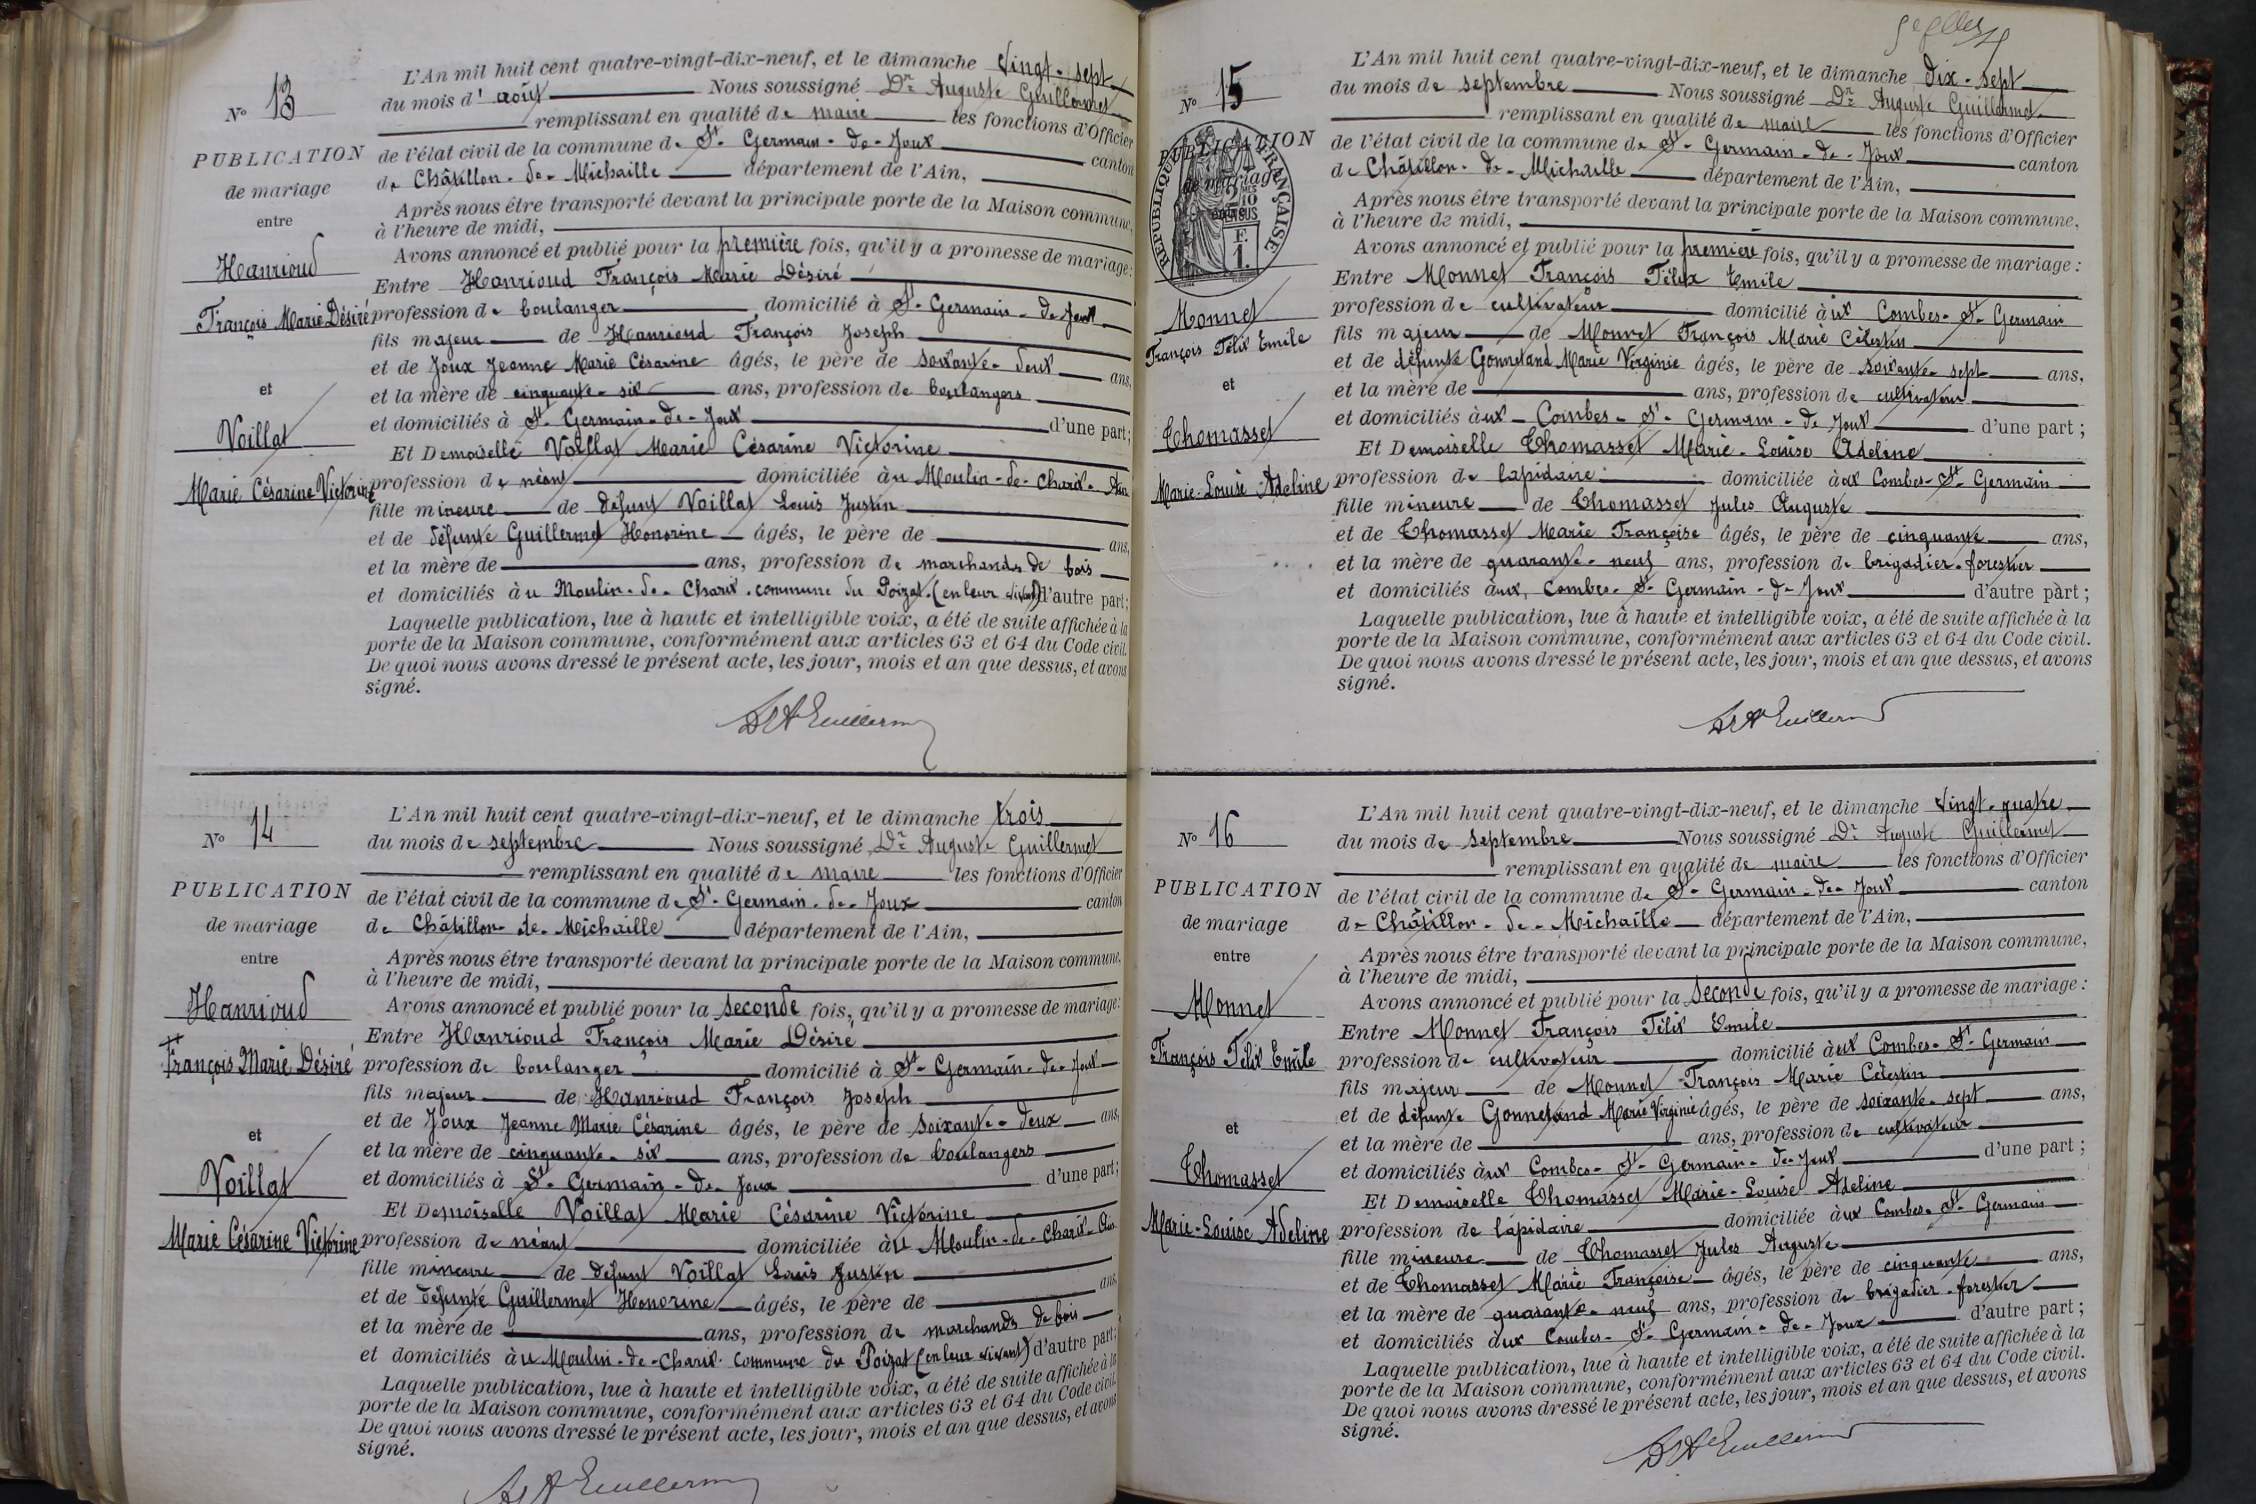 N° 13
PUBLICATION
de mariage
entre
Hanrioud
François Marie Désiré
et
Voillat
Marie Césarine Victorine
L'An mil huit cent quatre-vingt-dix-neuf, et le dimanche vingt-sept
du mois d'août Nous soussigné Dr Auguste Guillermet
remplissant en qualité de maire les fonctions d'Officier
de l'état civil de la commune de St-Germain-de-Joux canton
de Châtillon-de-Michaille département de l'Ain,
Après nous être transporté devant la principale porte de la Maison commune,
à l'heure de midi,
Avons annoncé et publié pour la première fois, qu'il y a promesse de mariage:
Entre Hanrioud François Marie Désiré
profession de boulanger domicilié à St-Germain-de-Joux
fils majeur de Hanrioud François Joseph
et de Joux Jeanne Marie Césarine âgés, le père de soixante-deux ans,
et la mère de cinquante-six ans, profession de boulangers
et domiciliés à St-Germain-de-Joux d'une part;
Et Demoiselle Voillat Marie Césarine Victorine
profession de néant domiciliée au Moulin-de-Charix-Ain
fille mineure de défunt Voillat Louis Justin
et de défunte Guillermet Honorine âgés, le père de ans,
et la mère de ans, profession de marchands de bois
et domiciliés au Moulin-de-Charix, commune du Poizat (en leur vivant) d'autre part;
Laquelle publication, lue à haute et intelligible voix, a été de suite affichée à la
porte de la Maison commune, conformément aux articles 63 et 64 du Code civil.
De quoi nous avons dressé le présent acte, les jour, mois et an que dessus, et avons
signé.
Dr A Guillermet
N° 14
PUBLICATION
de mariage
entre
Hanrioud
François Marie Désiré
et
Voillat
Marie Césarine Victorine
L'An mil huit cent quatre-vingt-dix-neuf, et le dimanche trois
du mois de septembre Nous soussigné Dr Auguste Guillermet
remplissant en qualité de maire les fonctions d'Officier
de l'état civil de la commune de St-Germain-de-Joux canton
de Châtillon-de-Michaille département de l'Ain,
Après nous être transporté devant la principale porte de la Maison commune,
à l'heure de midi,
Avons annoncé et publié pour la seconde fois, qu'il y a promesse de mariage:
Entre Hanrioud François Marie Désiré
profession de boulanger domicilié à St-Germain-de-Joux
fils majeur de Hanrioud François Joseph
et de Joux Jeanne Marie Césarine âgés, le père de soixante-deux ans,
et la mère de cinquante-six ans, profession de boulangers
et domiciliés à St-Germain-de-Joux d'une part;
Et Demoiselle Voillat Marie Césarine Victorine
profession de néant domiciliée au Moulin-de-Charix-Ain
fille mineure de défunt Voillat Louis Justin
et de défunte Guillermet Honorine âgés, le père de ans,
et la mère de ans, profession de marchands de bois
et domiciliés au Moulin-de-Charix commune du Poizat (en leur vivant) d'autre part;
Laquelle publication, lue à haute et intelligible voix, a été de suite affichée à la
porte de la Maison commune, conformément aux articles 63 et 64 du Code civil.
De quoi nous avons dressé le présent acte, les jour, mois et an que dessus, et avons
signé.
Dr A Guillermet
N° 15
PUBLICATION
de mariage
entre
RÉPUBLIQUE FRANÇAISE
2/10
EN SUS
F.
1.
Monnet
François Félix Emile
et
Thomasset
Marie-Louise Adeline
L'An mil huit cent quatre-vingt-dix-neuf, et le dimanche dix-sept
du mois de septembre Nous soussigné Dr Auguste Guillermet
remplissant en qualité de maire les fonctions d'Officier
de l'état civil de la commune de St-Germain-de-Joux canton
de Châtillon-de-Michaille département de l'Ain,
Après nous être transporté devant la principale porte de la Maison commune,
à l'heure de midi,
Avons annoncé et publié pour la première fois, qu'il y a promesse de mariage:
Entre Monnet François Félix Emile
profession de cultivateur domicilié aux Combes-St-Germain
fils majeur de Monnet François Marie Célestin
et de défunte Gonnetand Marie Virginie âgés, le père de soixante-sept ans,
et la mère de ans, profession de cultivateur
et domiciliés aux Combes-St-Germain-de-Joux d'une part;
Et Demoiselle Thomasset Marie-Louise Adeline
profession de lapidaire domiciliée aux Combes-St-Germain
fille mineure de Thomasset Jules Auguste
et de Thomasset Marie Françoise âgés, le père de cinquante ans,
et la mère de quarante-neuf ans, profession de brigadier-forestier
et domiciliés aux Combes-St-Germain-de-Joux d'autre part;
Laquelle publication, lue à haute et intelligible voix, a été de suite affichée à la
porte de la Maison commune, conformément aux articles 63 et 64 du Code civil.
De quoi nous avons dressé le présent acte, les jour, mois et an que dessus, et avons
signé.
Dr A Guillermet
N° 16
PUBLICATION
de mariage
entre
Monnet
François Félix Emile
et
Thomasset
Marie-Louise Adeline
L'An mil huit cent quatre-vingt-dix-neuf, et le dimanche vingt-quatre
du mois de septembre Nous soussigné Dr Auguste Guillermet
remplissant en qualité de maire les fonctions d'Officier
de l'état civil de la commune de St-Germain-de-Joux canton
de Châtillon-de-Michaille département de l'Ain,
Après nous être transporté devant la principale porte de la Maison commune,
à l'heure de midi,
Avons annoncé et publié pour la seconde fois, qu'il y a promesse de mariage:
Entre Monnet François Félix Emile
profession de cultivateur domicilié aux Combes-St-Germain
fils majeur de Monnet François Marie Célestin
et de défunte Gonnetand Marie Virginie âgés, le père de soixante-sept ans,
et la mère de ans, profession de cultivateur
et domiciliés aux Combes-St-Germain-de-Joux d'une part;
Et Demoiselle Thomasset Marie-Louise Adeline
profession de lapidaire domiciliée aux Combes-St-Germain
fille mineure de Thomasset Jules Auguste
et de Thomasset Marie Françoise âgés, le père de cinquante ans,
et la mère de quarante-neuf ans, profession de brigadier-forestier
et domiciliés aux Combes-St-Germain-de-Joux d'autre part;
Laquelle publication, lue à haute et intelligible voix, a été de suite affichée à la
porte de la Maison commune, conformément aux articles 63 et 64 du Code civil.
De quoi nous avons dressé le présent acte, les jour, mois et an que dessus, et avons
signé.
Dr A Guillermet